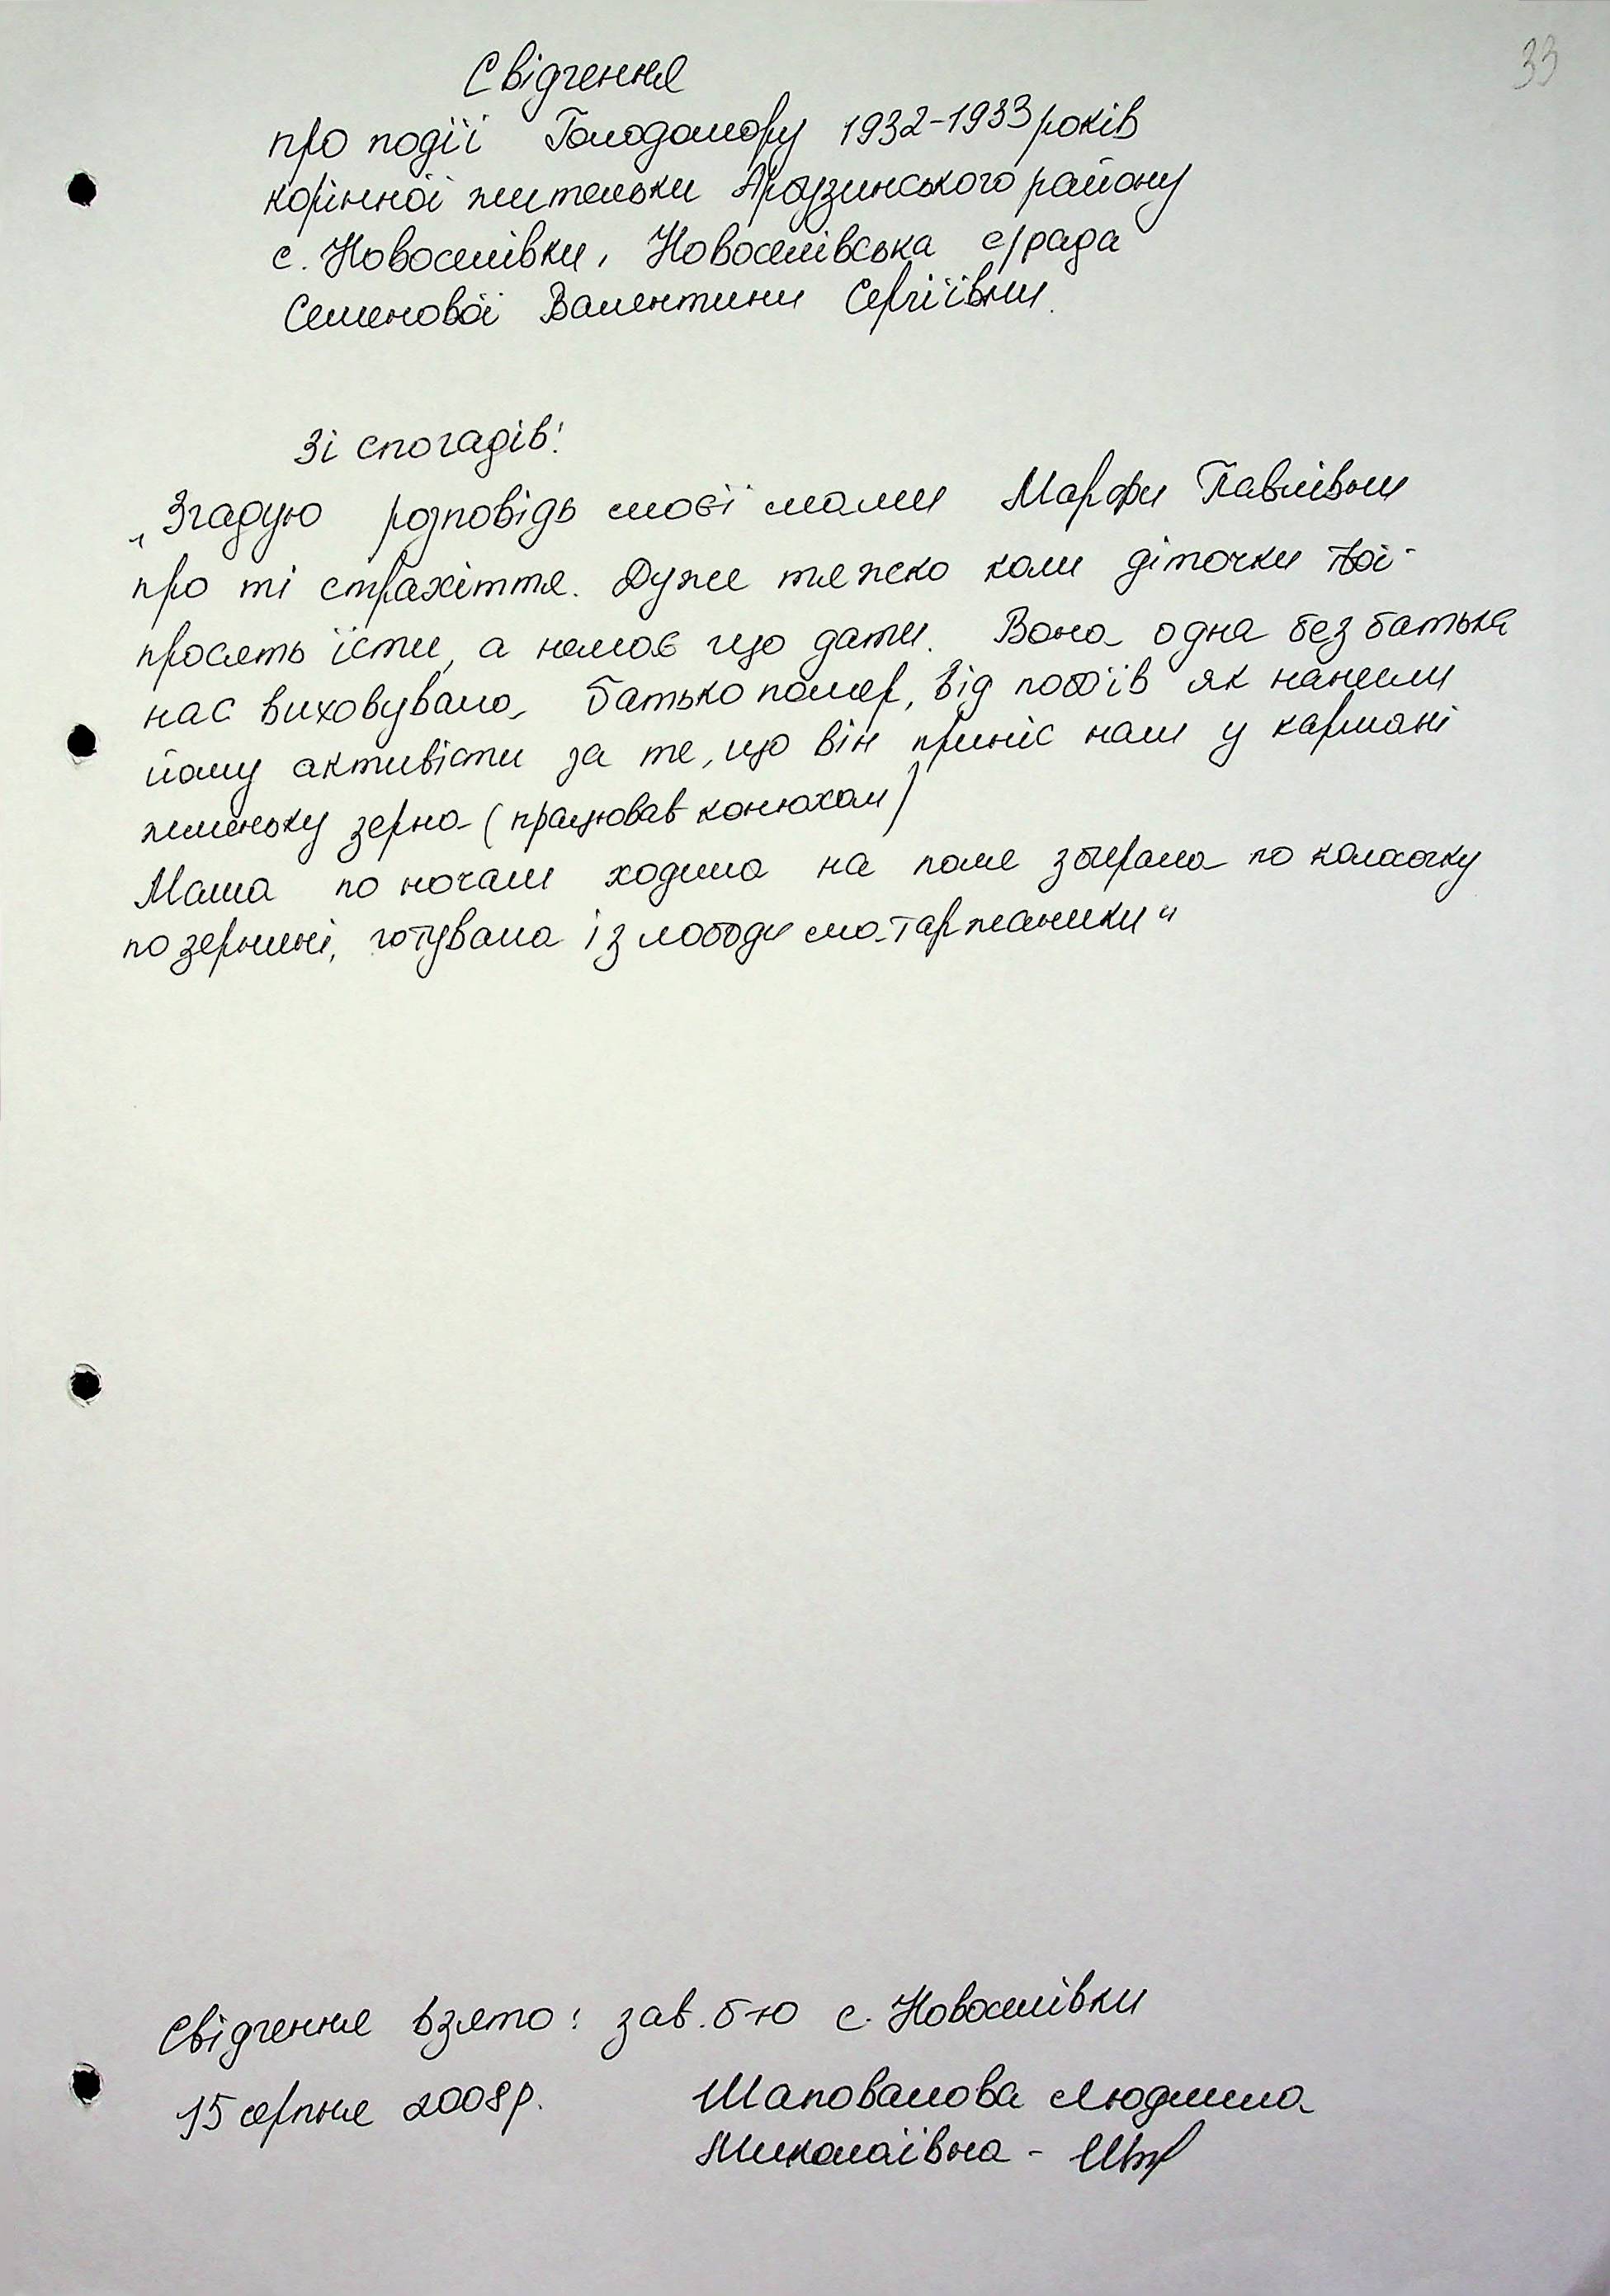 33
Свідчення
про події Голодомору 1932-1933 років
корінної жительки Арбузинського району
с. Новоселівки, Новоселівська с/рада
Семенової Валентини Сергіївни.
Зі спогадів:
„Згадую розповідь моєї мами Марфи Павлівни
про ті страхіття. Дуже тяжко коли діточки твої
просять їсти, а немає що дати. Вона одна без батька
нас виховувала, батько помер, від побоїв як нанесли
йому активісти за те, що він приніс нам у кармані
жменьку зерна (працював конюхом)
Мама по ночам ходила на поле збирала по колосочку
по зернині, готувала із лободи маторжаники"
Свідчення взято: зав. б-ю с. Новоселівки
15 серпня 2008р. Шаповалова Людмила
Миколаївна -